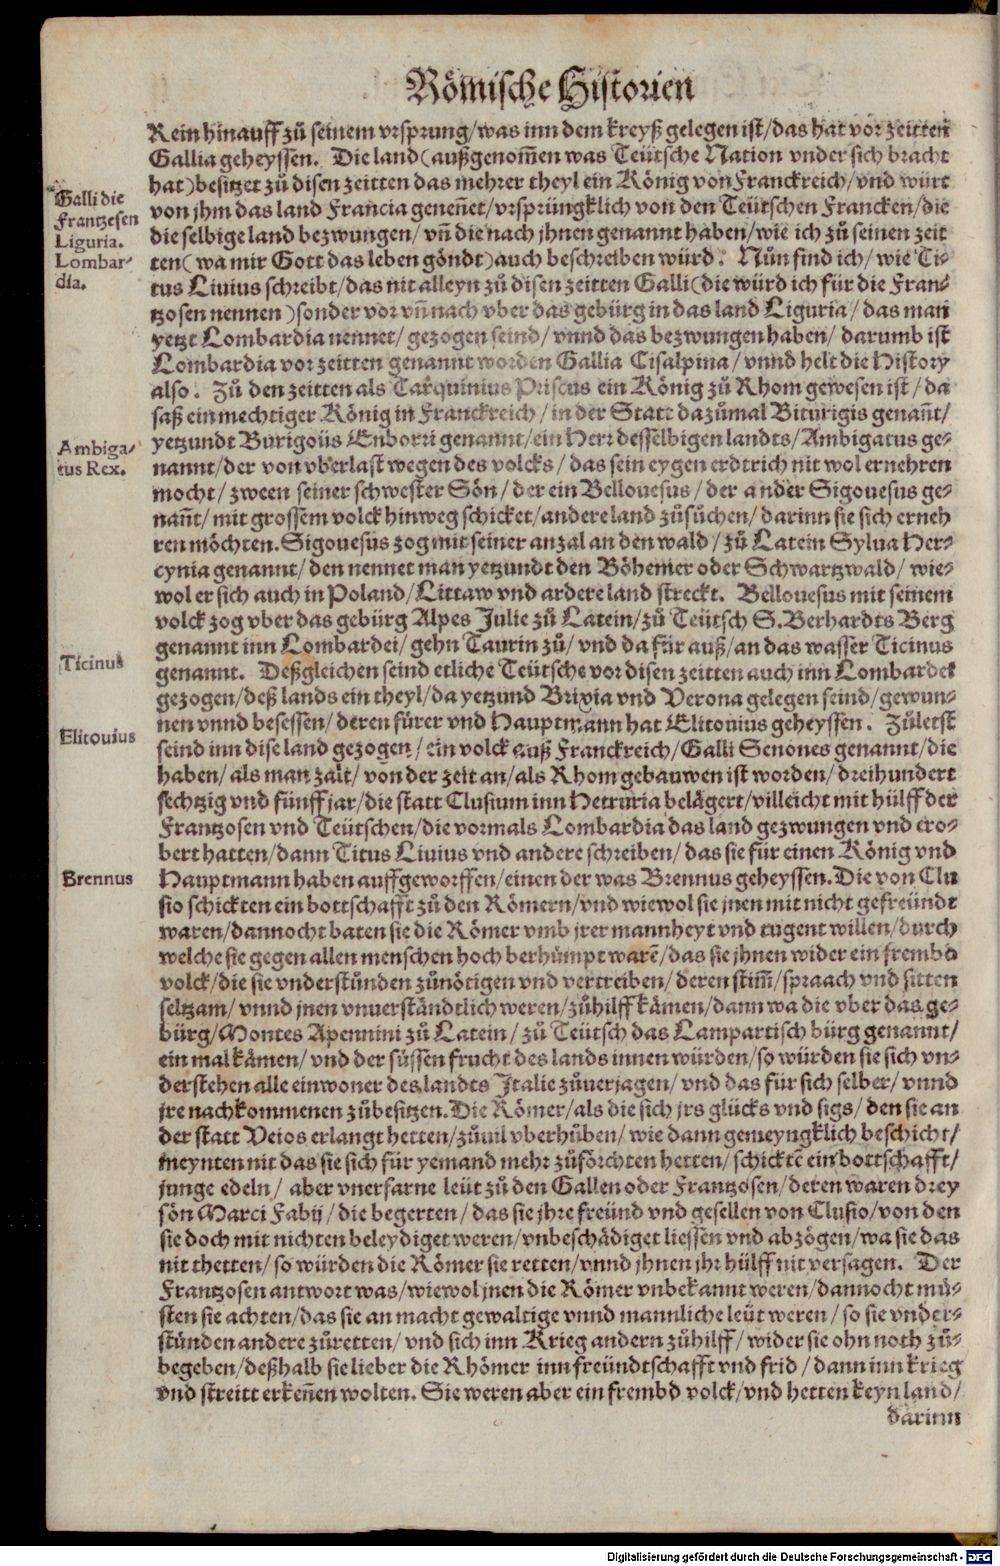 Römische Historien
Rein hinauff zů seinem vrsprung/was inn dem kreyß gelegen ist/das hat vor zeitten
Gallia geheyssen. Die land (außgenom̃en was Teütsche Nation vnder sich bracht
hat) besitzet zů disen zeitten das mehrer theyl ein König von Franckreich/vnd würt
von jhm das land Francia geneñet/vrsprüngklich von den Teütschen Francken/die
die selbige land bezwungen/vñ die nach jhnen genannt haben/wie ich zů seinen zeit
ten (wa mir Gott das leben göndt) auch beschreiben würd. Nůn find ich/wie Ti-
tus Liuius schreibt/das nit alleyn zů disen zeitten Galli (die würd ich für die Fran-
tzosen nennen) sonder vor vñ nach vber das gebürg in das land Liguria/das man
yetzt Lombardia nennet/gezogen seind/vnnd das bezwungen haben/darumb ist
Lombardia vor zeitten genannt worden Gallia Cisalpina/vnnd helt die History
also. Zů den zeitten als Tarquinius Priscus ein König zů Rhom gewesen ist/da
saß ein mechtiger König in Franckreich/in der Statt dazůmal Biturigis genañt/
yetzundt Burigoüs Enborri genannt/ein Herr desselbigen landts/Ambigatus ge-
nannt/der von vberlast wegen des volcks/das sein eygen erdtrich nit wol ernehren
mocht/zween seiner schwester Sön/der ein Bellouesus/der ander Sigouesus ge-
nañt/mit grossem volck hinweg schicket/andere land zůsůchen/darinn sie sich erneh
ren möchten. Sigouesus zog mit seiner anzal an den wald/zů Latein Sylua Her-
cynia genannt/den nennet man yetzundt den Böhemer oder Schwartzwald/wie-
wol er sich auch in Poland/Littaw vnd ardere land streckt. Bellouesus mit seinem
volck zog vber das gebürg Alpes Julie zů Latein/zů Teütsch S. Berhardts Berg
genannt inn Lombardei/gehn Taurin zů/vnd da für auß/an das wasser Ticinus
genannt. Deßgleichen seind etliche Teütsche vor disen zeitten auch inn Lombardei
gezogen/deß lands ein theyl/da yetzund Brixia vnd Verona gelegen seind/gewun-
nen vnnd besessen/deren fürer vnd Hauptmann hat Elitouius geheyssen. Zůletst
seind inn dise land gezogen/ein volck auß Franckreich/Galli Senones genannt/die
haben/als man zalt/von der zeit an/als Rhom gebauwen ist worden/dreihundert
sechtzig vnd fünff jar/die statt Clusium inn Hetruria belägert/villeicht mit hülff der
Frantzosen vnd Teütschen/die vormals Lombardia das land gezwungen vnd ero-
bert hatten/dann Titus Liuius vnd andere schreiben/das sie für einen König vnd
Hauptmann haben auffgeworffen/einen der was Brennus geheyssen. Die von Clu
sio schickten ein bottschafft zů den Römern/vnd wiewol sie jnen mit nicht gefreündt
waren/dannocht baten sie die Römer vmb jrer mannheyt vnd tugent willen/durch
welche sie gegen allen menschen hoch berhümpt warẽ/das sie jhnen wider ein frembd
volck/die sie vnderstünden zůnötigen vnd vertreiben/deren stim̃/spraach vnd sitten
seltzam/vnnd jnen vnuerständtlich weren/zůhilff kämen/dann wa die vber das ge-
bürg/Montes Apennini zů Latein/zů Teütsch das Lampartisch bürg genannt/
ein mal kämen/vnd der süssen frucht des lands innen würden/so würden sie sich vn-
derstehen alle einwoner des landts Italie zůuerjagen/vnd das für sich selber/vnnd
jre nachkommenen zůbesitzen. Die Römer/als die sich jrs glücks vnd sigs/den sie an
der statt Veios erlangt hetten/zůuil vberhůben/wie dann gemeyngklich beschicht/
meynten nit das sie sich für yemand mehr zůförchten hetten/schicktẽ ein bottschafft/
junge edeln/aber vnerfarne leüt zů den Gallen oder Frantzosen/deren waren drey
sön Marci Fabij/die begerten/das sie jhre freünd vnd gesellen von Clusio/von den
sie doch mit nichten beleydiget weren/vnbeschädiget liessen vnd abzögen/wa sie das
nit thetten/so würden die Römer sie retten/vnnd jhnen jhr hülff nit versagen. Der
Frantzosen antwort was/wiewol jnen die Römer vnbekannt weren/dannocht mü-
sten sie achten/das sie an macht gewaltige vnnd mannliche leüt weren/so sie vnder-
stünden andere zůretten/vnd sich inn Krieg andern zůhilff/wider sie ohn noth zů-
begeben/deßhalb sie lieber die Rhömer inn freündtschafft vnd frid/dann inn krieg
vnd streitt erkeñen wolten. Sie weren aber ein frembd volck/vnd hetten keyn land/
darinn
Galli die
Frantzesen
Liguria.
Lombar-
dia.
Ambiga-
tus Rex.
Ticinus
Elitouius
Brennus
Digitalisierung gefördert durch die Deutsche Forschungsgemeinschaft - DFG